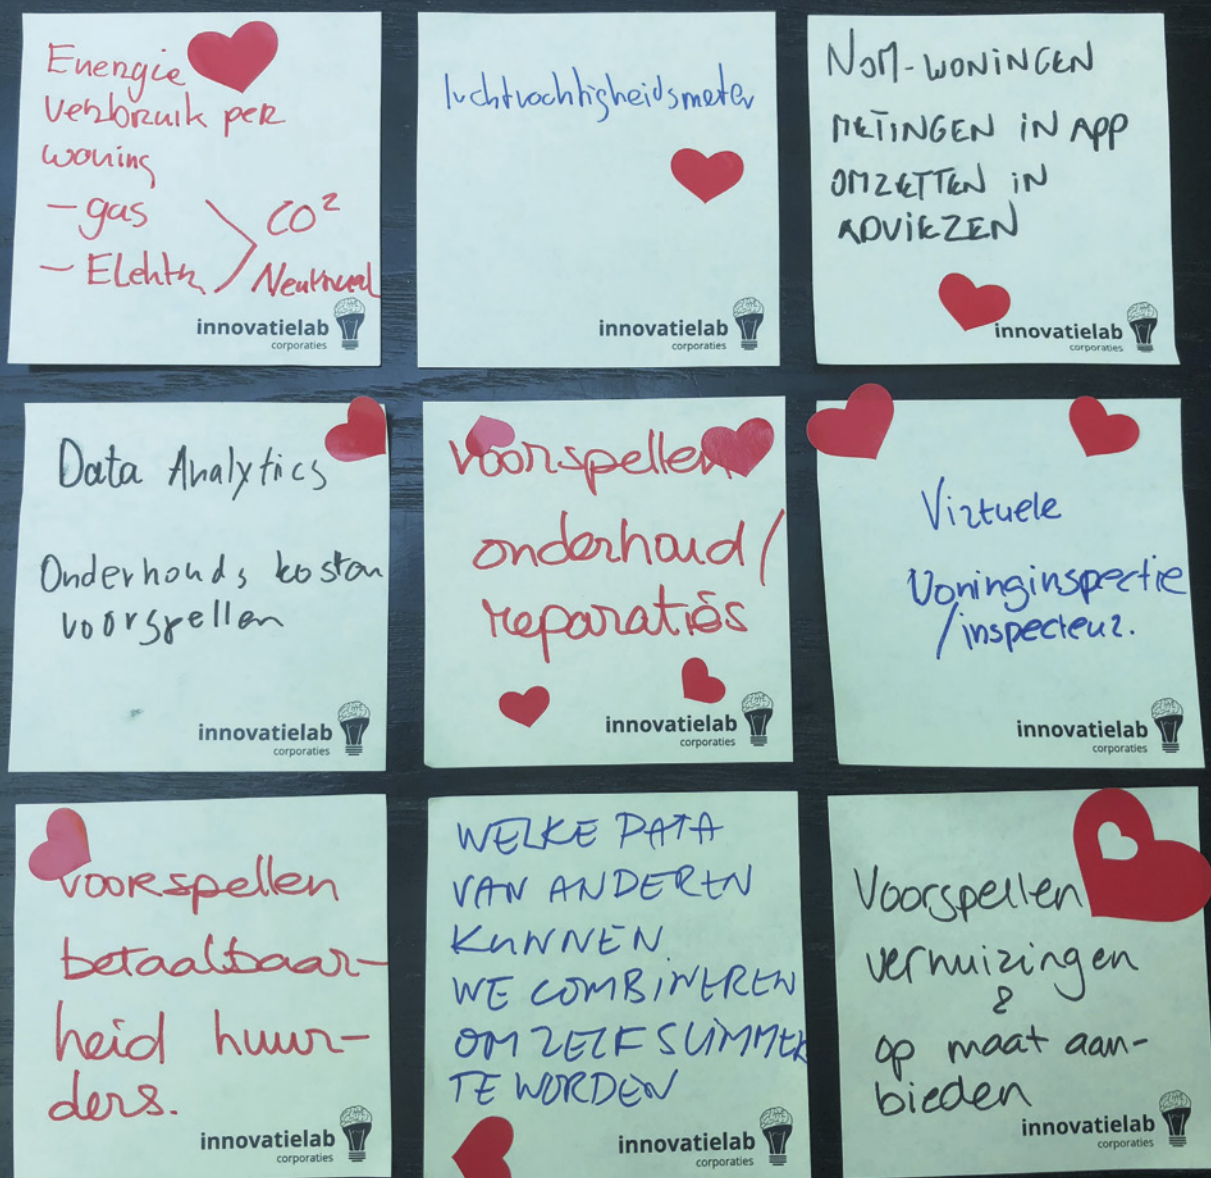 Energie
verbruik per
woning
- gas
- Elektr
CO²
Neutraal
innovatielab
corporaties
luchtvochtigheidsmeter
innovatielab
corporaties
NOM-WONINGEN
METINGEN IN APP
OMZETTEN IN
ADVIEZEN
innovatielab
corporaties
Data Analytics
Onderhouds kosten
voorspellen
innovatielab
corporaties
voorspellen
onderhoud/
reparaties
innovatielab
corporaties
Virtuele
Woninginspectie
/inspecteur.
innovatielab
corporaties
voorspellen
betaalbaar-
heid huur-
ders.
innovatielab
corporaties
WELKE DATA
VAN ANDEREN
KUNNEN
WE COMBINEREN
OM ZELF SLIMMER
TE WORDEN
innovatielab
corporaties
Voorspellen
verhuizingen
&
op maat aan-
bieden
innovatielab
corporaties